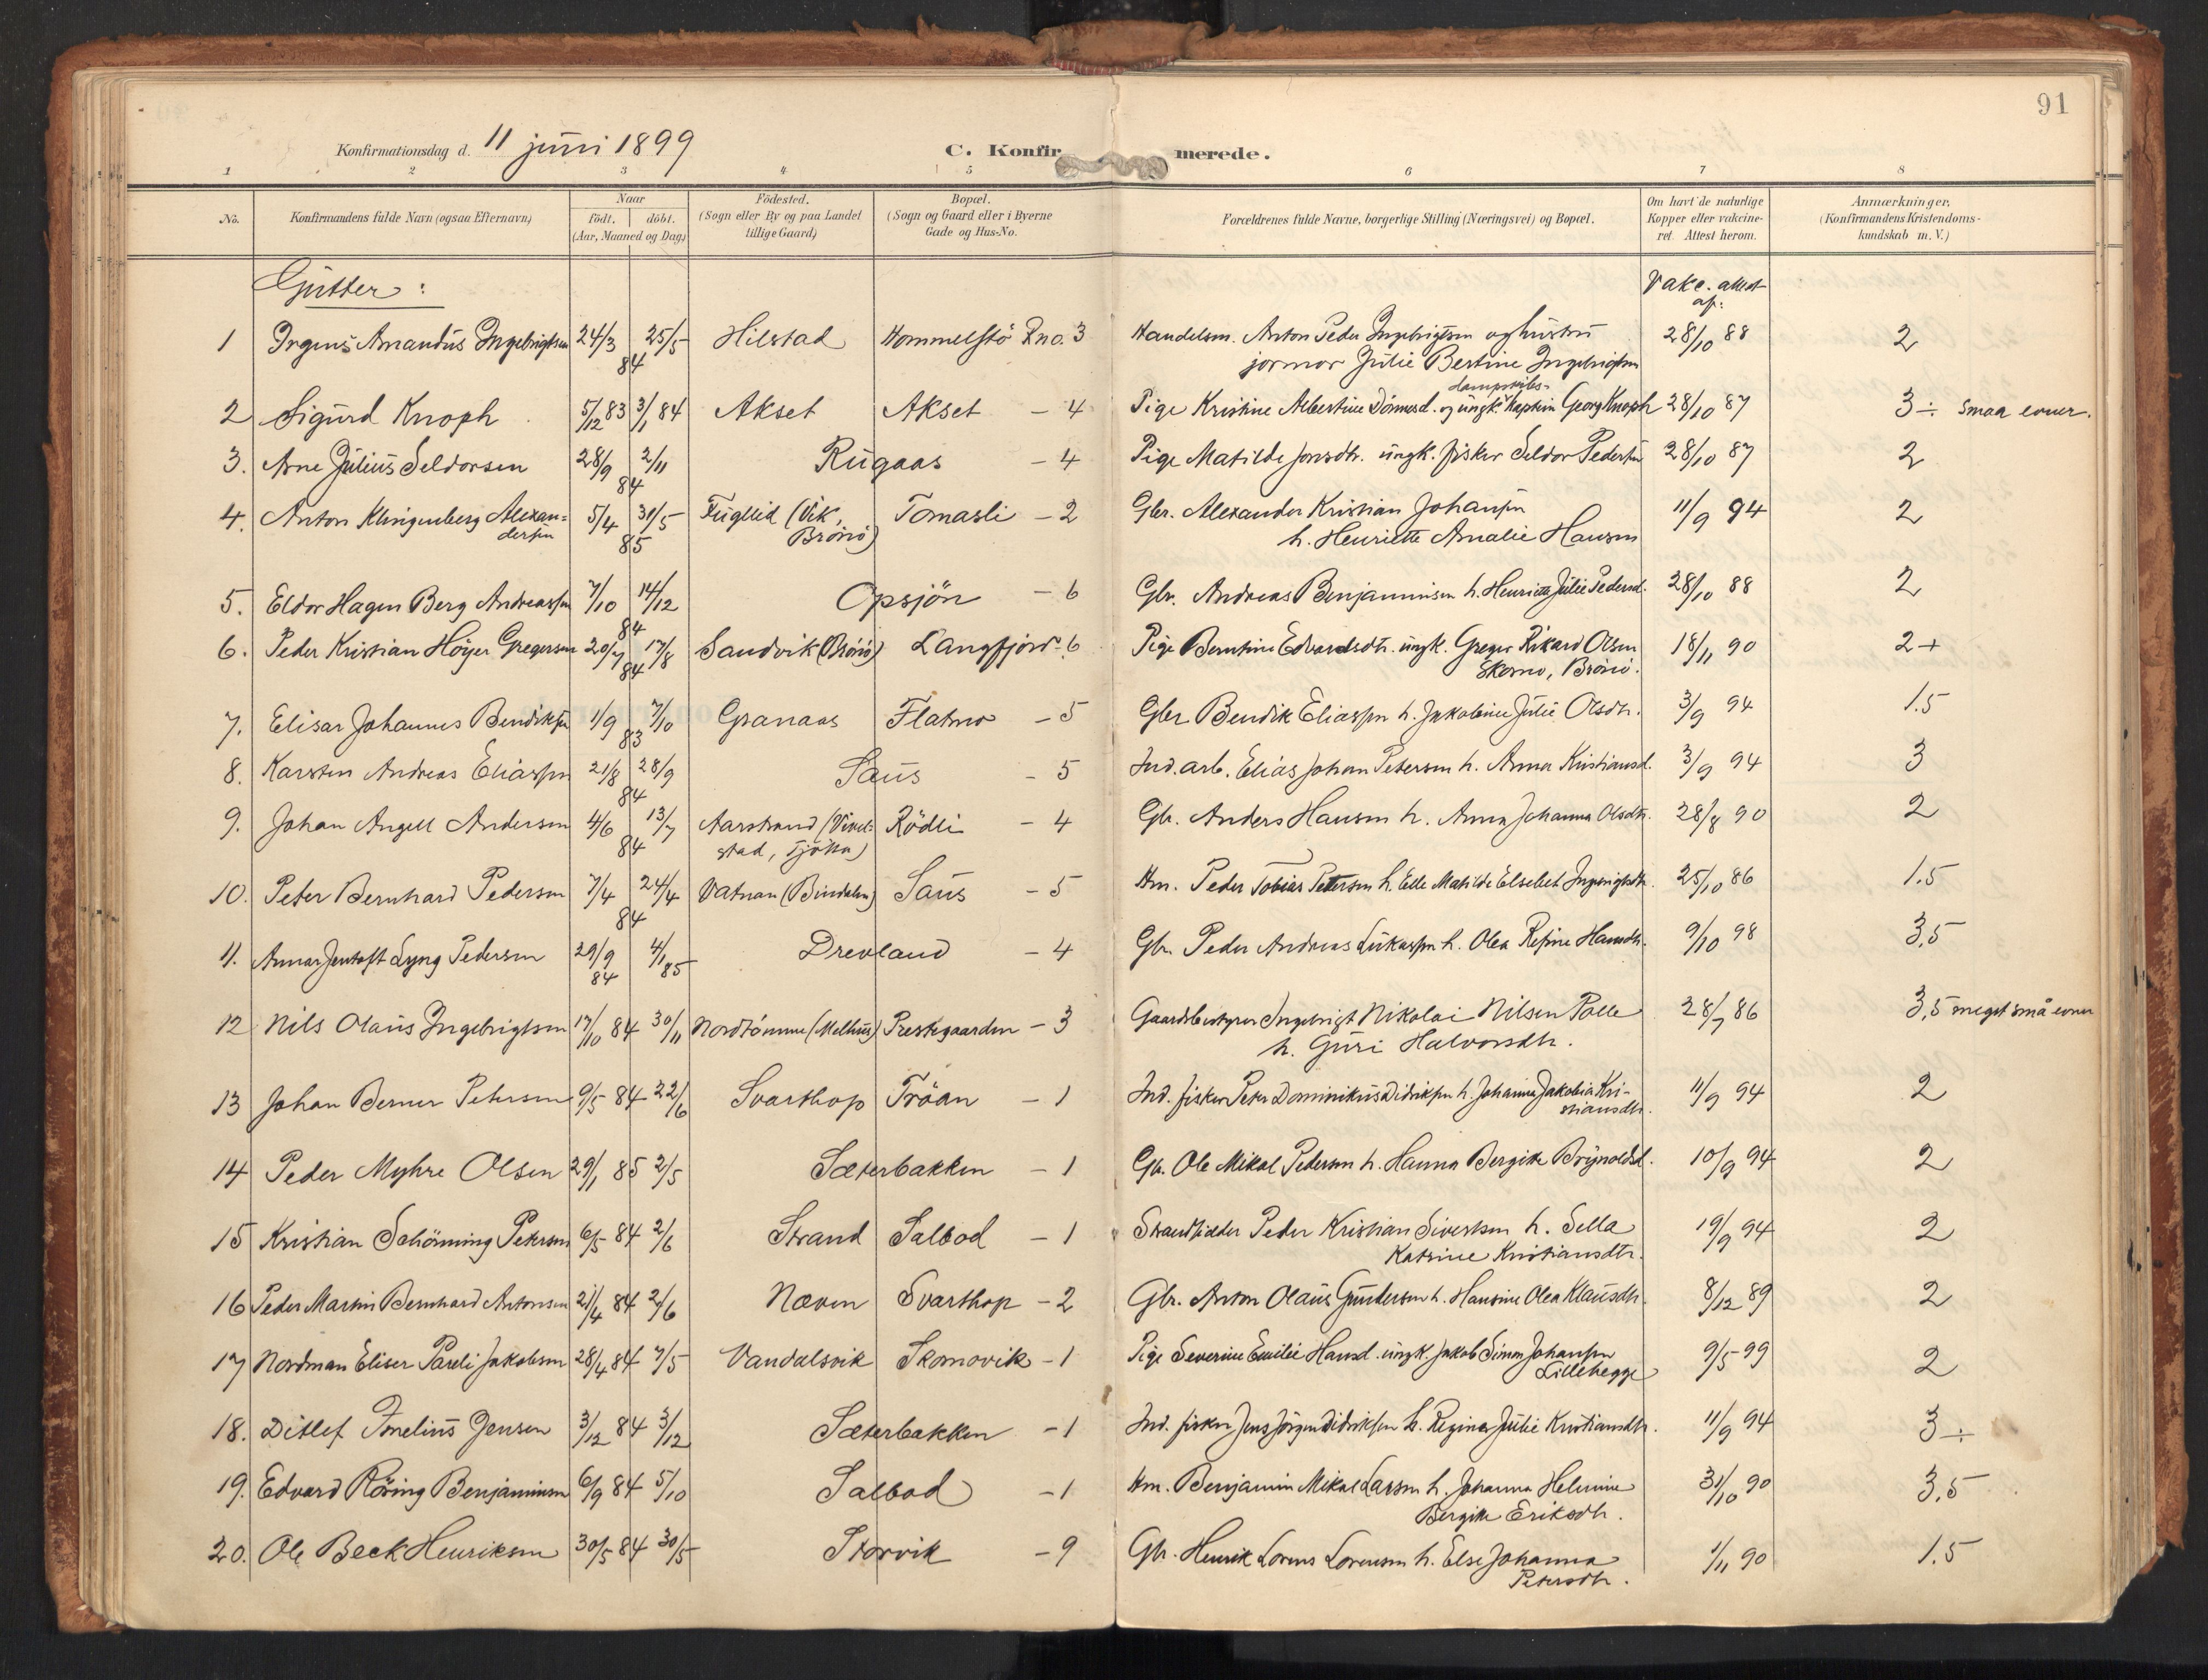 91
Konfirmationsdag d. 11 juni 1899 C. Konfir merede.
1 2 3 4 5 6 7 8
No. Konfirmandens fulde Navn (ogsaa Efternavn) Naar födt. döbt. (Aar, Maaned og Dag) Födested. (Sogn eller By og paa Landet tillige Gaard) Bopæl. (Sogn og Gaard eller i Byerne Gade og Hus-No. Forældrenes fulde Navne, borgerlige Stilling (Næringsvei) og Bopæl. Om havt de naturlige Kopper eller vakcineret. Attest herom. Anmærkninger. (Konfirmandens Kristendomskundskab m. V.)
Gutter: Vakc. attest af:
1 Amandus Ingebrigtsen 24/3 25/5 84 Hilstad Hommelstö Rno. 3 Handelsm. Anton Peder Ingebrigtsen og hustru 28/10 88 2
jormor Julie Bertine Ingebrigtsen
2 Sigurd Knoph 5/12 83 3/1 84 Akset Akset - 4 Pige Kristine Albertine Dönnesd. og ungk. dampskibs- Kaptein Georg Knoph 28/10 87 3 ÷ smaa evner.
3. Arne Julius Seldorsen 28/9 2/11 84 Rugaas - 4 Pige Matilde Jonsdtr. ungk. fisker Seldor Pedersen 28/10 87 2
4. Anton Klingenberg Alexan= 5/4 31/5 Fugllid (Vik, Tomasli - 2 Gbr. Alexander Kristian Johansen 11/9 94 2
dersen 85 Brönö) h. Henriette Amalie Hansen
5. Eldor Hagen Berg Andreassen 7/10 14/12 84 Opsjön - 6 Gbr. Andreas Benjaminsen h. Henriette Julie Pedersd. 28/10 88 2
6. Peder Kristian Höyer Gregersen 20/7 17/8 84 Sandvik (Brönö) Langfjord - 6 Pige Berntine Edvardsdtr. ungk. Greger Rikard Olsen 18/11 90 2+
Skomo, Brönö.
7. Elisar Johannes Bendiksen 1/9 7/10 83 Granaas Flatmo - 5 Gbr. Bendik Eliassen h. Jakobine Julie Olsdtr. 3/9 94 1.5
8. Karsten Andreas Eliassen 21/8 28/9 84 Saus - 5 Ind. arb. Elias Johan Petersen h. Anna Kristiansd. 3/9 94 3
9. Johan Angell Andersen 4/6 13/7 Aarstrand (Vivel- Rödli - 4 Gb. Anders Hansen h. Anna Johanna Olsdtr. 28/8 90 2
84 stad, Tjötta)
10. Peter Bernhard Pedersen 7/4 24/4 84 Vatnan (Bindalen) Saus - 5 Hm. Peder Tobias Petersen h. Elle Matilde Elsebet Ingebrigtsdtr. 25/10 86 1.5
11. Annar Jentoft Lyng Pedersen 29/9 84 4/1 85 Drevland - 4 Gbr. Peder Andreas Lukassen h. Olea Refine Hansdtr. 9/10 98 3.5
12 Nils Olaus Ingebrigtsen 17/10 84 30/11 Nordtömme (Melhus) Prestegaarden - 3 Gaardsbestyrer Ingebrigt Nikolai Nilsen Polle 28/7 86 3,5 meget små evner
h. Guri Halvorsdtr.
13 Johan Berner Petersen 9/5 84 22/6 Svarthop Tröan - 1 Ind. fisker Peter Dominikus Didriksen h. Johanna Jakobia Kri- 11/9 94 2
stiansdtr.
14 Peder Myhre Olsen 29/1 85 2/5 Sæterbakken - 1 Gb. Ole Mikal Pedersen h. Hanna Bergitte Brynoldsd. 10/9 94 2
15 Kristian Schönning Petersen 6/5 84 2/6 Strand Salbod - 1 Strandsidder Peder Kristian Sivertsen h. Sella 19/9 94 2
Katrine Kristiansdtr.
16 Peder Martin Bernhard Antonsen 21/4 84 2/6 Næven Svarthop - 2 Gbr. Anton Olaus Gundersen h. Hansine Olea Klausdtr. 8/12 89 2
17 Nordman Eliser Pareli Jakobsen 28/4 84 7/5 Vandalsvik Skomovik - 1 Pige Severine Emilie Hansd. ungk. Jakob Simon Johansen 9/5 99 2
Lillehegge
18. Ditlef Jensen 3/12 84 3/12 Sæterbakken - 1 Ind. fisker Jens Jörgen Didriksen h. Regine Julie Kristiansdtr. 11/9 94 3 ÷
19. Edvard Röring Benjaminsen 6/9 84 5/10 Salbod - 1 Hm. Benjamin Mikal Larsen h. Johanna Helmine 31/10 90 3,5
Bergitte Eriksdtr.
20. Ole Beck Henriksen 30/5 84 30/5 Storvik - 9 Gb. Henrik Lorens Lorensen h. Else Johanna 1/11 90 1.5
Petersdtr.